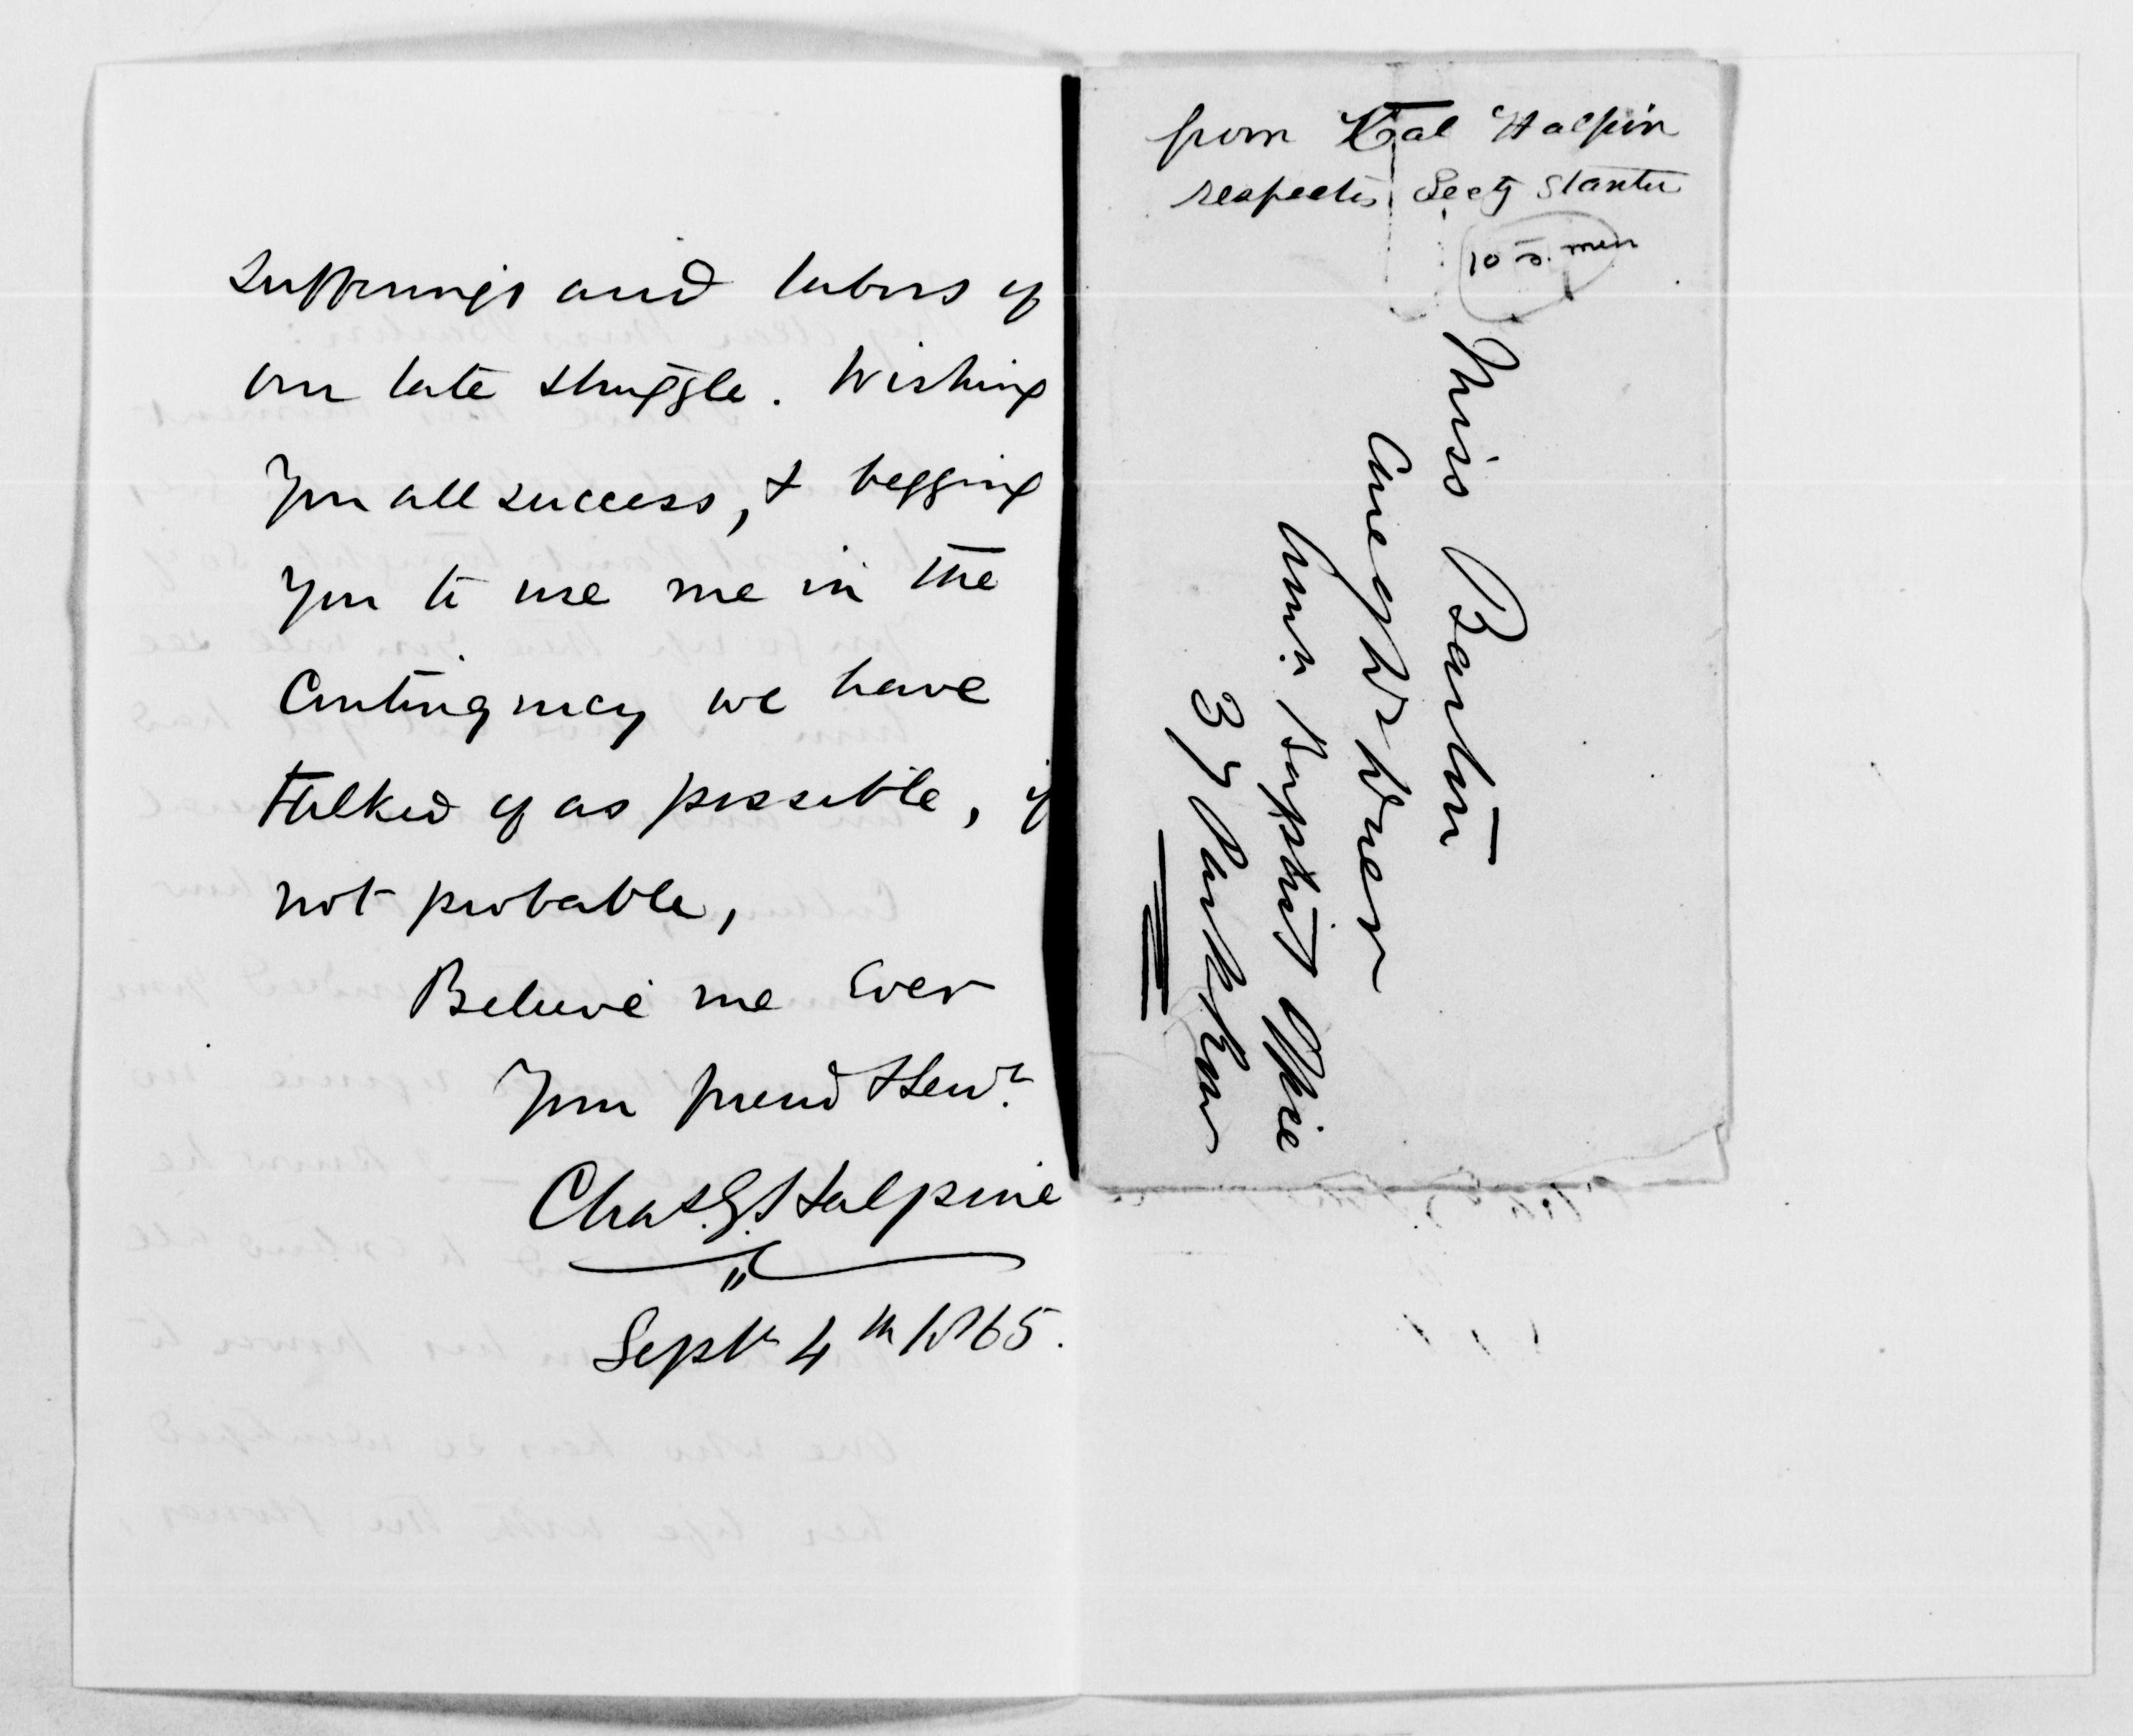 sufferings and labors of
our late struggle. Wishing
you all success, & begging
you to use me in the
Contingency we have
talked of as possible, if
not probable,
Believe me Ever
Your friend & Servt.
Chas. G. Halpine
Septr 4th 1865.
from Halpin
respects Secty Stanton
10 men
Miss Barton
Care of Dr
Amn. Baptist Office
37 Park Row